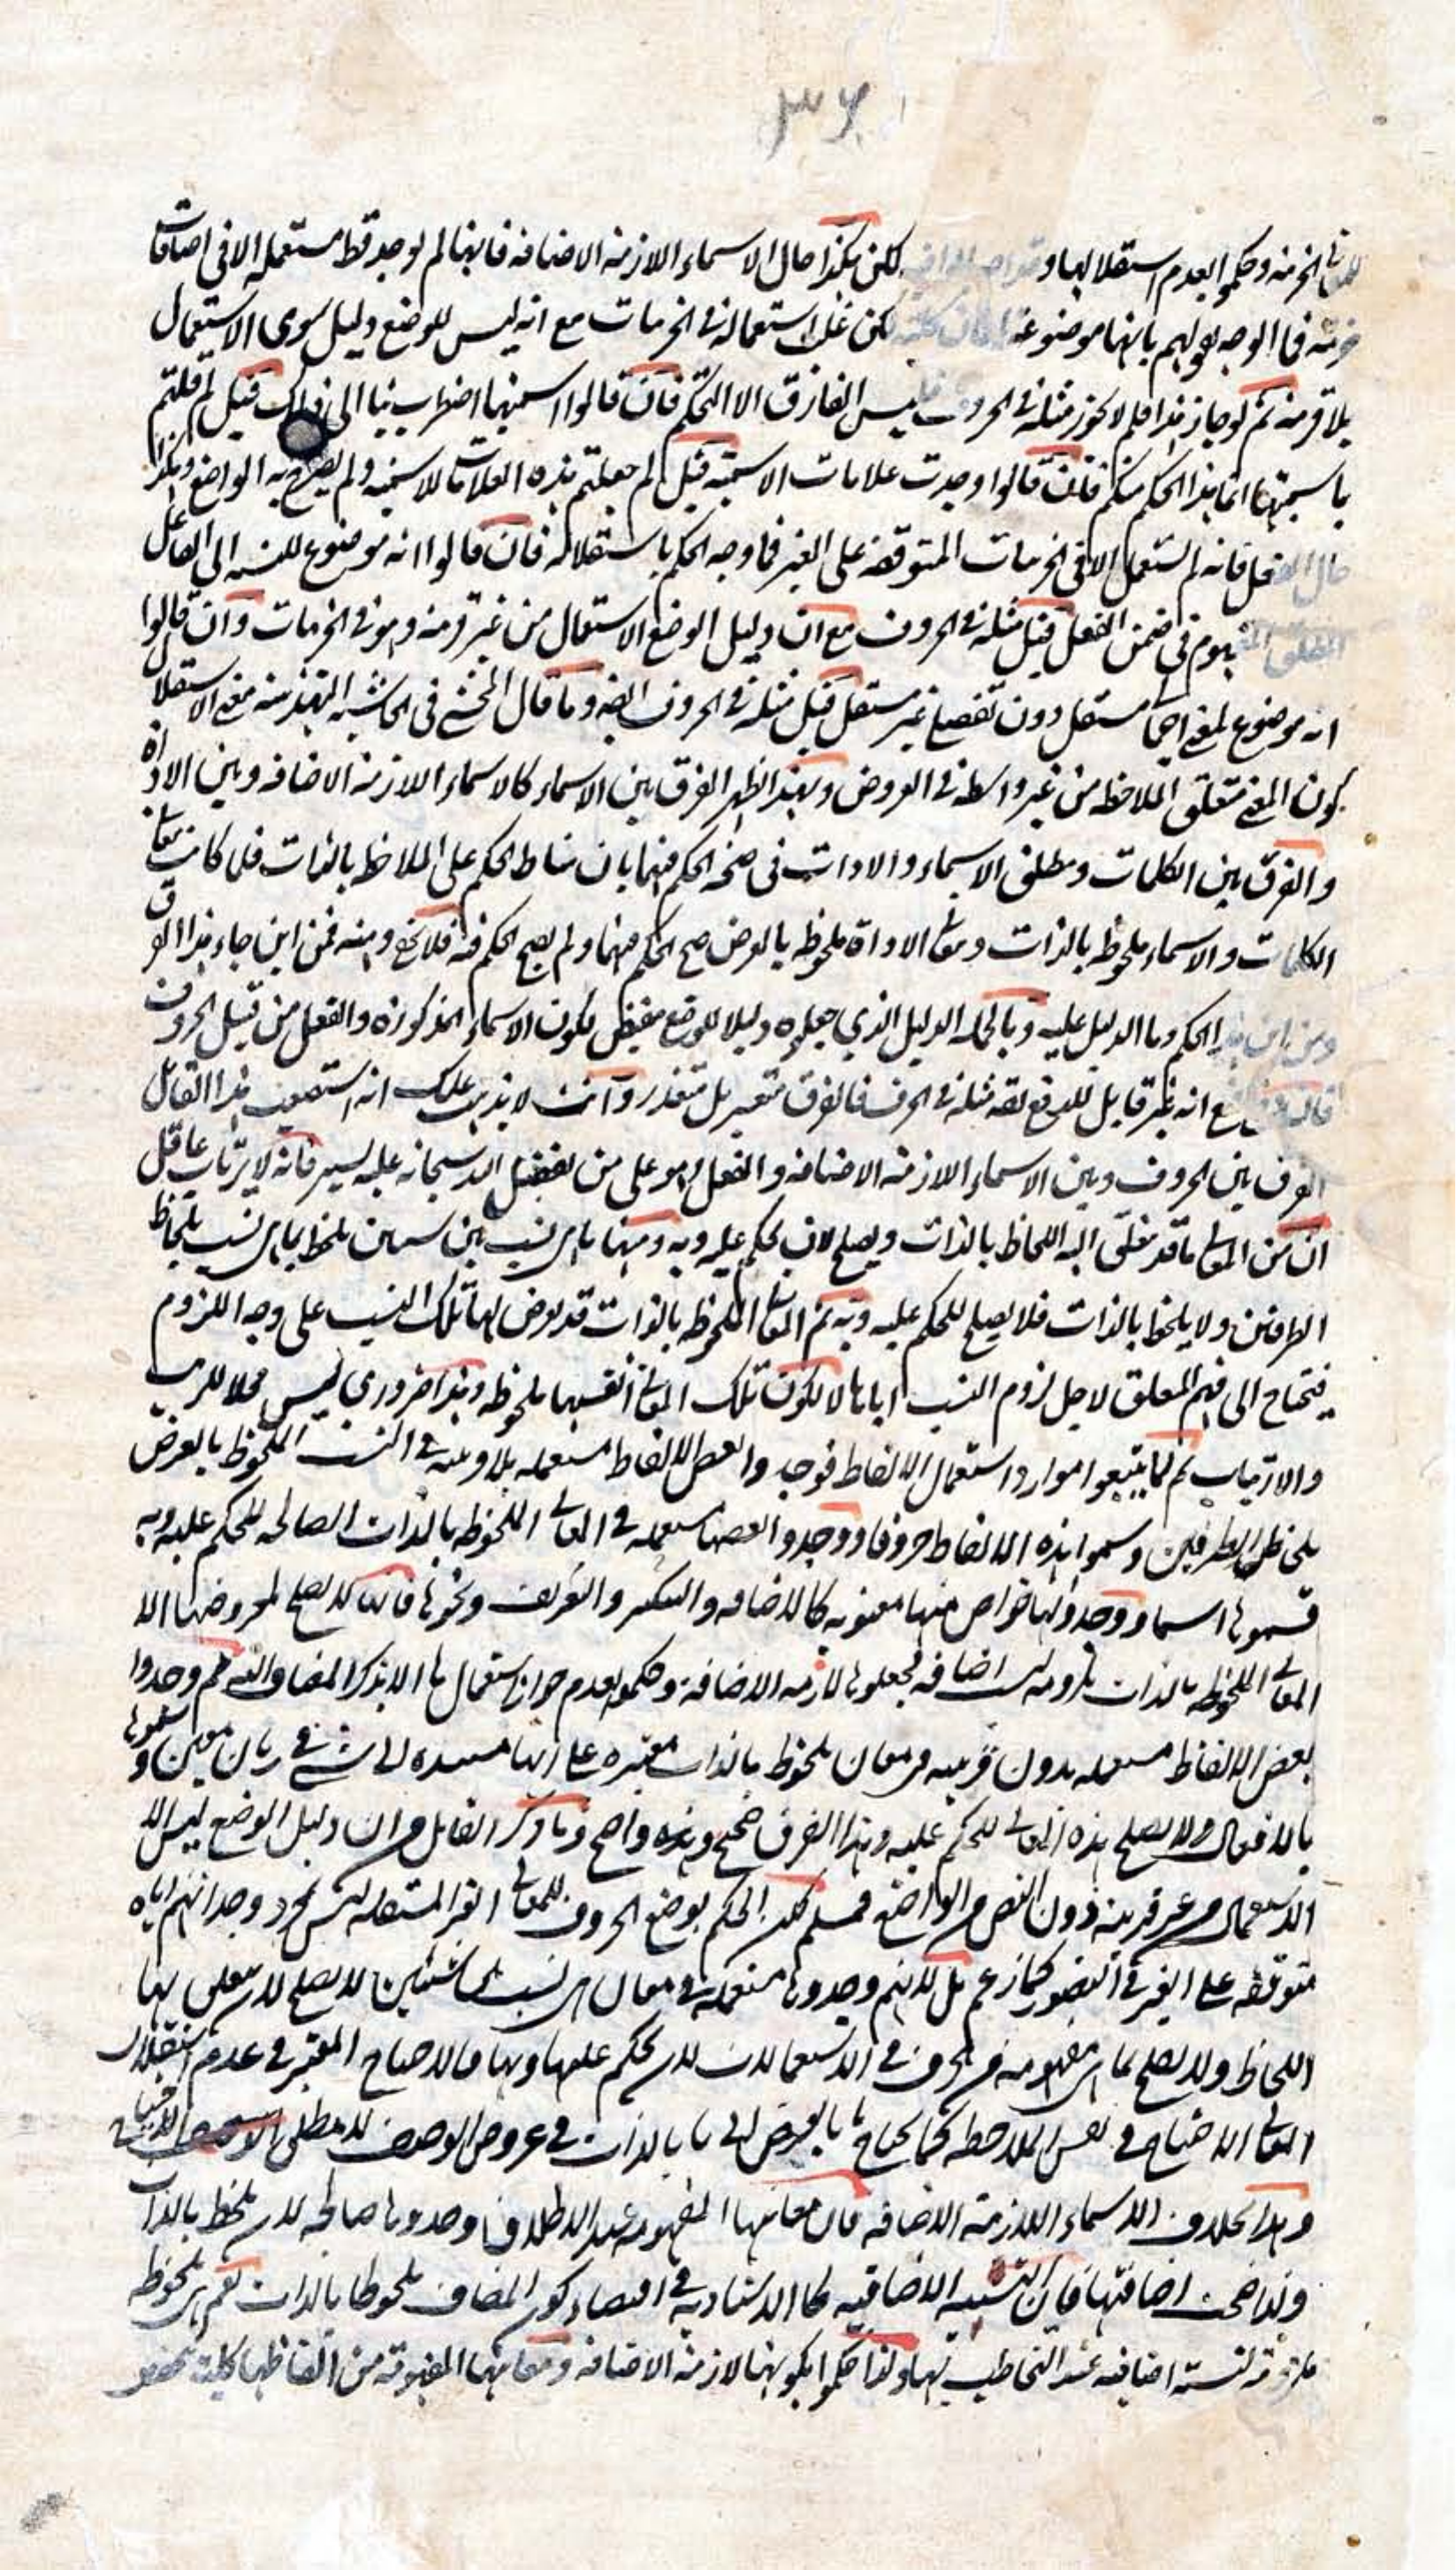 ٣٦
الجزئية وحكموا بعدم استقلالها و لكن هكذا حال الاسماء اللازمة الاضافة فانها لم توجد قط مستعملة الا فى اضافات
جزئية فما الوجه لقولهم بانها موضوعة لكن غلب استعماله فى الجزئيات مع انه ليس للوضع دليل سوى الاستعمال
بلا قرينة ثم لو جاز هذا فلم لا يجوز مثله فى الحروف فليس الفارق الا التحكم فان قالوا اسميتها اضطرتنا الى ذلك قيل لم قلتم
باسميتها انما هذا الحكم منكم فان قالوا وجدت علامات الاسمية قيل لم جعلتم هذه العلامات للاسمية ولم يصرح به الواضع وهكذا
حال الفعل فانه لم يستعمل الا فى الجزئيات المتوقفة على الغير فما وجه الحكم باستقلاله فان قالوا انه موضوع للنسبة الى الفاعل
المطلق المفهوم فى ضمن الفعل قيل مثله فى الحروف مع ان دليل الوضع الاستعمال من غير قرينة وهو فى الجزئيات وان قالوا
انه موضوع لمعنى اجمالى مستقل دون تفصيلى غير مستقل قيل مثله فى الحروف ايضا وما قال المحشى فى الحاشية التهذيبية معنى الاستقلال
كون المعنى متعلق الملاحظة من غير واسطة فى العروض وبهذا ظهر الفرق بين الاسماء كالاسماء اللازمة الاضافة وبين الاداة
والفرق بين الكلمات ومطلق الاسماء والادات فى صحة الحكم فيهما بان مناط الحكم على الملاحظ بالذات فلما كانت معانى
الكلمات والاسماء ملحوظة بالذات ومعانى الاداة ملحوظة بالعرض صح الحكم فيهما ولم يصح الحكم فيه فلا يخفى وهنه فمن اين جاء هذا الفرق
ومن اين هذا الحكم وما الدليل عليه وبالجملة الدليل الذى جعلوه دليلا للوضع مقتضٍ لكون الاسماء المذكورة والفعل من قبيل الحروف
مع انه غير قابل للدفع لقه مثله فى الحرف فالفرق متعسر بل متعذر وانت لا يذهب عليك انه استصعب هذا القائل
الفرق بين الحروف وبين الاسماء اللازمة الاضافة والفعل وهو على من تفضل الله سبحانه عليه يسير فانه لا يرتاب عاقل
ان من المعانى ما قد تعلق اليه اللحاظ بالذات ويصلح لان يحكم عليه وبه ومنها ما هى نسب بين شيئين يلحظ بما هى نسب بلحاظ
الطرفين ولا يلحظ بالذات فلا يصلح للحكم عليه وبه ثم المعانى الملحوظة بالذات قد يعرض لها تلك النسب على وجه اللزوم
فيحتاج الى فهم المتعلق لاجل لزوم النسب اياها لا لكون تلك المعانى انفسها ملحوظة وهذا ضرورى ليس محلا للريب
والارتياب ثم لما تتبعوا موارد استعمال الالفاظ فوجدوا بعض الالفاظ مستعملة بلا قرينة فى النسب الملحوظ بالعرض
بلحاظ الطرفين وسموا هذه الالفاظ حروفا ووجدوا بعضها مستعملة فى المعانى الملحوظة بالذات الصالحة للحكم عليه وبه
فسموها اسماء ووجدوا لها خواص منها معنوية كالاضافة والتنكير والتعريف ونحوها فانه لا يصلح لمعروضها الا
المعانى الملحوظة بالذات ملزومة نسب اضافة فجعلوها لازمة الاضافة وحكموا بعدم جواز استعمالها الا بذكر المضاف اليه ثم وجدوا
بعض الالفاظ مستعملة بدون قرينة فى معان ملحوظة بالذات معتبرة على انها مسندة الى شئ فى زمان معين وسموها
بالافعال ولا يصلح هذه المعانى للحكم عليه وهذا الفرق صحيح وهذه واضح وما ذكر القائل من ان دليل الوضع ليس الا
الاستعمال من غير قرينة دون النص من الواضع فمسلم لكن الحكم بوضع الحروف للمعانى الغير المستقلة ليس بمجرد وجدانهم اياه
متوقفة على الغير فى التصور كما زعم بل لانهم وجدوها مستعملة فى معان هى نسب بين شيئين لا يصلح لان يتعلق بها
اللحاظ ولا يصلح بما هى مفهومة من الحروف فى الاستعمالات لان يحكم عليها وبها فالاحتياج المعتبر فى عدم استقلال
المعانى الاحتياج فى نفس الملاحظة كما يحتاج ما بالعرض الى ما بالذات فى عروض الوصف لا مطلق الاحتياج
وهذا بخلاف الاسماء اللازمة الاضافة فان معانيها المفهومة عند الاطلاق وجدوها صالحة لان يلحظ بالذات
ولذا صحت اضافتها فان النسبة الاضافية كالاسنادية فى اقتضاء كون المضاف ملحوظا بالذات نعم هى ملحوظة
ملزومة لنسبة اضافية عند التخاطب بها ولذا حكموا بكونها لازمة الاضافة ومعانيها المفهومة من الفاظها كلية